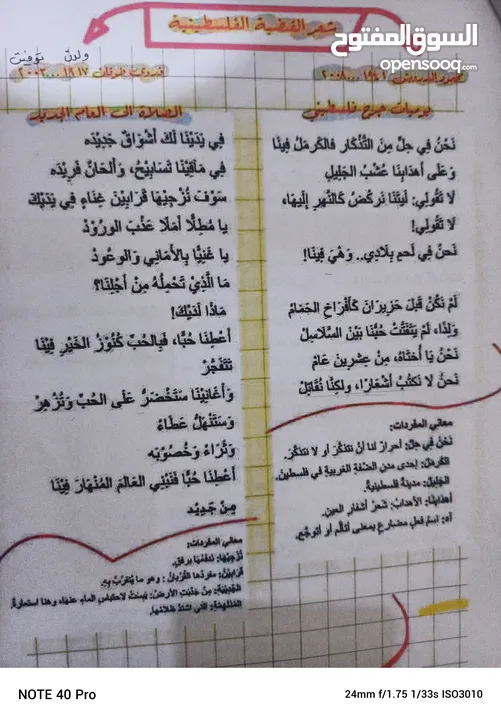 شعر القضية الفلسطينية
السوق المفتوح
opensooq.com
محمود الدرويش ١٩٤١ ... ٢٠٠٨
يوميات جرح فلسطيني
نَحْنُ فِي حِلٍّ مِنَ التَّذْكَارِ فَالكَرْمَلُ فِينَا
وَعَلَى أَهْدَابِنَا عُشْبُ الجَلِيلِ
لَا تَقُولِي: لَيْتَنَا نَرْكُضُ كَالنَّهْرِ إِلَيْهَاء،
لَا تَقُولِي!
نَحْنُ فِي لَحْمِ بِلَادِي.. وَهْيَ فِينَا!
لَمْ نَكُنْ قَبْلَ حَزِيرَانَ كَأَفْرَاخِ الحَمَامْ
وَلِذَا، لَمْ يَتَفَتَّتْ حُبُّنَا بَيْنَ السَّلَاسِلْ
نَحْنُ يَا أُخْتَاهُ، مِنْ عِشْرِينَ عَامْ
نَحْنُ لَا نَكْتُبُ أَشْعَارًا، وَلَكِنَّا نُقَاتِلْ
معاني المفردات:
نَحْنُ فِي حِلٍّ: أحرار لنا أنْ نتذكّرَ أو لا نتذكّرَ.
الكَرْمَل: إحدى مدن الضفة الغربية في فلسطين.
الجَلِيل: مدينة فلسطينية.
أهدابنا: الأهداب: شعرُ أشفار العين.
آه: اسم فعل مضارع بمعنى أتألّم أو أتوجّع.
ولادن توفيت
فدوى طوقان ١٩١٧ ... ٢٠٠٣
الصلاة الى العام الجديد
فِي يَدَيْنَا لَكَ أَشْوَاقٌ جَدِيْدَه
فِي مَآقِيْنَا تَسَابِيْحُ، وَأَلْحَانٌ فَرِيْدَه
سَوْفَ نُزْجِيْهَا قَرَابِيْنَ غِنَاءٍ فِي يَدَيْكَ
يا مُطِلًّا أَمَلًا عَذْبَ الوُرُوْدْ
يا غَنِيًّا بِالأَمَانِي وَالوعُودْ
مَا الَّذِيْ تَحْمِلُهُ مِنْ أَجْلِنَا؟
مَاذَا لَدَيْكَ!
أَعْطِنَا حُبًّا، فَبِالحُبِّ كُنُوْزُ الخَيْرِ فِيْنَا
تَتَفَجَّرْ
وَأَغَانِيْنَا سَتَخْضَرُّ عَلَى الحُبِّ وَتُزْهِرْ
وَسَتَنْهَلُّ عَطَاءً
وَثَرَاءً وَخُصُوْبَه
أَعْطِنَا حُبًّا فَنَبْنِي العَالَمَ المُنْهَارَ فِيْنَا
مِنْ جَدِيد
معاني المفردات:
نُزْجِيْهَا: ندفعُها برفق.
قَرَابِيْنُ: مفردُها القُرْبَانُ: وهو ما يُتقرَّبُ به.
الجَدِيْبَةُ: مِنْ جَدَبَتِ الأرضُ: يَبِسَتْ لاحتباسِ الماءِ عنها، وهنا استعارة.
التي اشتدّ ظلامُها.
NOTE 40 Pro
24mm f/1.75 1/33s ISO3010